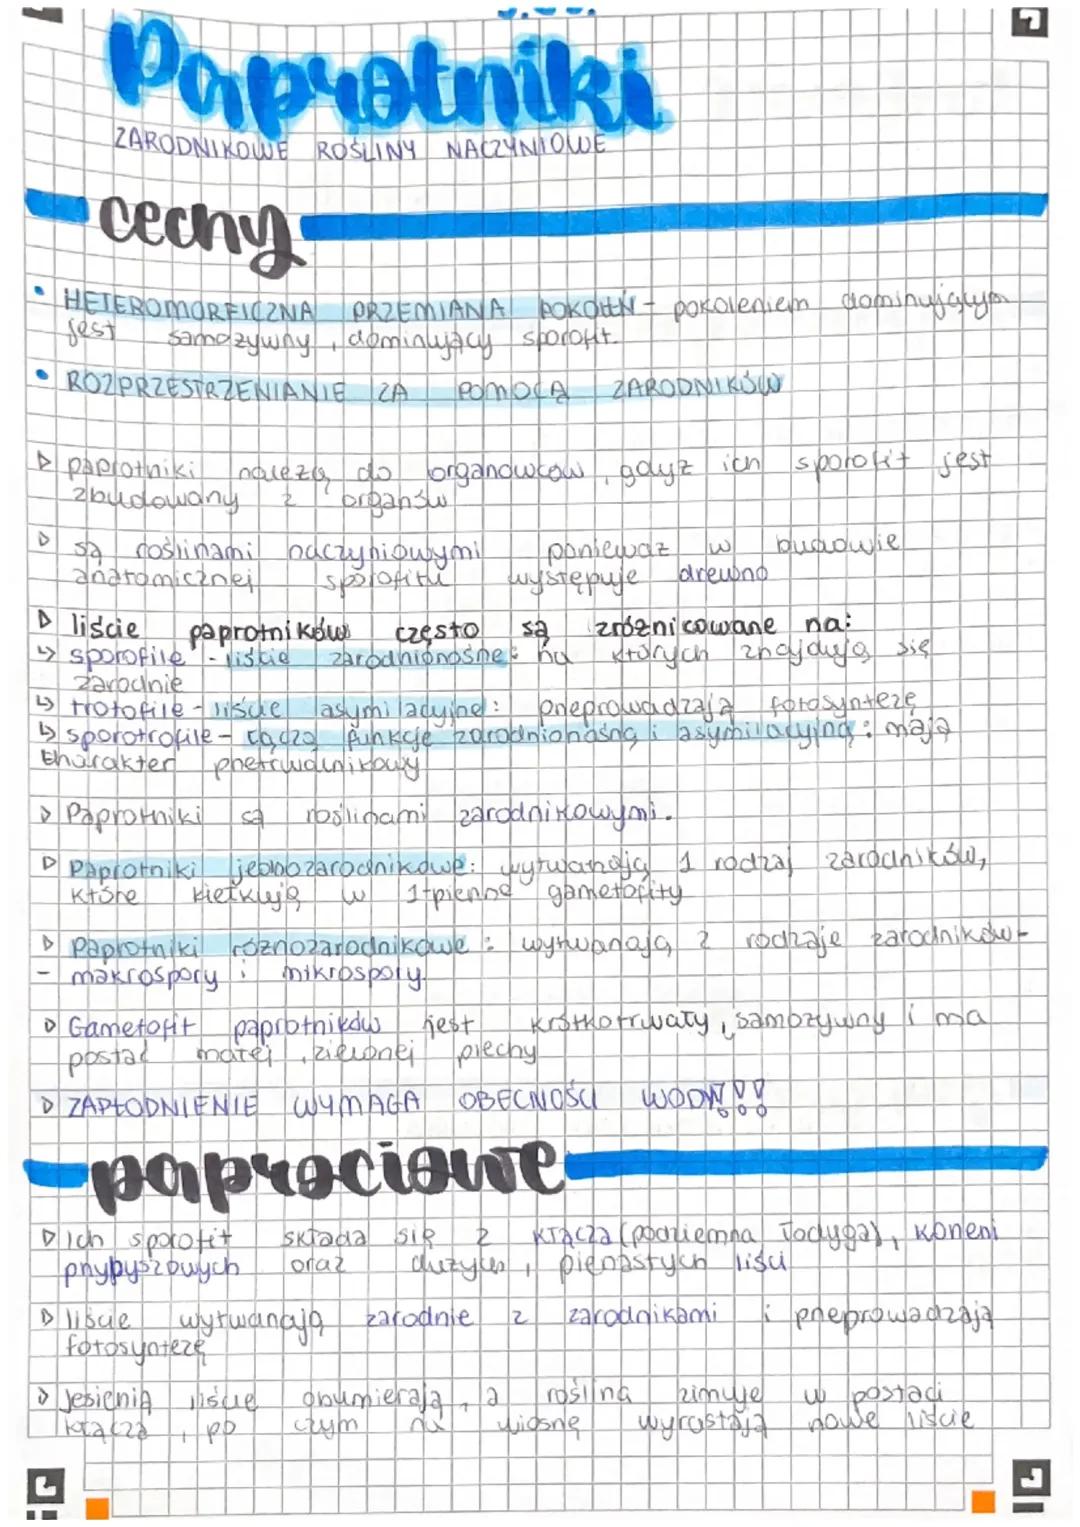 Paprotniki
ZARODNIKOWE ROŚLINY NACZYNIOWE
cechy
• HETEROMORFICZNA PRZEMIANA POKOLEŃ - pokoleniem dominującym
jest samożywny, dominujący sporofit.
• ROZPRZESTRZENIANIE ZA POMOCĄ ZARODNIKÓW
▷ paprotniki należą do organowców, gdyż ich sporofit jest
zbudowany z organów
▷ są roślinami naczyniowymi ponieważ w budowie
anatomicznej sporofitu występuje drewno
▷ liście paprotników często są zróżnicowane na:
↳ sporofile - liście zarodnionośne: na których znajdują się
zarodnie
↳ trofofile - liście asymilacyjne: przeprowadzają fotosyntezę
↳ sporotrofile - łączą funkcje zarodnionośną i asymilacyjną: mają
charakter przetrwalnikowy
▷ Paprotniki są roślinami zarodnikowymi.
▷ Paprotniki jednozarodnikowe: wytwarzają 1 rodzaj zarodników,
które kiełkują w 1-pienne gametofity
▷ Paprotniki różnozarodnikowe: wytwarzają 2 rodzaje zarodników-
- makrospory i mikrospory.
▷ Gametofit paprotników jest krótkotrwały, samożywny i ma
postać małej, zielonej plechy
▷ ZAPŁODNIENIE WYMAGA OBECNOŚCI WODY!!
paprociowe
▷ Ich sporofit składa się z kłącza (podziemna łodyga), korzeni
przybyszowych oraz dużych, pierzastych liści
▷ liście wytwarzają zarodnie z zarodnikami i przeprowadzają
fotosyntezę
▷ Jesienią liście obumierają, a roślina zimuje w postaci
kłącza, po czym na wiosnę wyrastają nowe liście